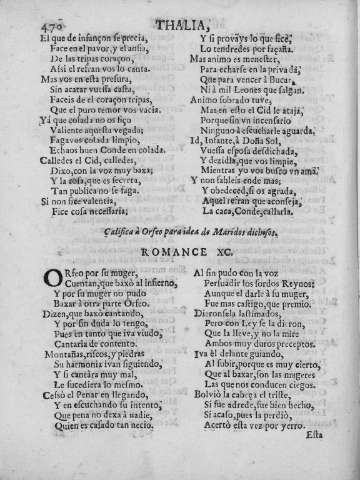 470
THALIA,
El que de infançon se precia,
Face en el pavor, y el ansia,
De las tripas coraçon,
Assi el refran vos lo canta.
Mas vos en esta presura,
Sin acatar vuessa casta,
Faceis de el coraçon tripas,
Que el puro temor vos vacia.
Yà que colada no os fiço
Valiente aquesta vegada;
Fagavos colada limpio,
Echaos buen Conde en colada.
Calledes el Cid, calledes,
Dixo, con la voz muy baxa;
Y la cosa, que es secreta,
Tan publica no se faga.
Si non fuè valentia,
Fice cosa necessaria;
Y si provays lo que fice,
Lo tendredes por façaña.
Mas animo es menester,
Para echarse en la privada,
Que para vencer à Bucar,
Ni à mil Leones que salgan.
Animo sobrado tuve,
Mas en esto el Cid le ataja,
Porque sin un incensario
Ninguno à escucharle aguarda.
Id, Infante, à Doña Sol,
Vuessa esposa desdichada,
Y dezidla, que vos limpie,
Mientras yo vos busco un ama.
Y non fableis ende mas;
Y obedeced, si os agrada,
Aquel refran que aconseja,
La caca, Conde, callarla.
Califica à Orfeo para idea de Maridos dichosos.
ROMANCE XC.
ORfeo por su muger,
Cuentan, que baxò al infierno,
Y por su muger no pudo
Baxar à otra parte Orfeo.
Dizen, que baxò cantando,
Y por sin duda lo tengo,
Pues en tanto que iva viudo,
Cantaria de contento.
Montañas, riscos, y piedras
Su harmonia ivan siguiendo,
Y si cantàra muy mal,
Le sucediera lo mesmo.
Cessò el Penar en llegando,
Y en escuchando su intento,
Que pena no dexa à nadie,
Quien es casado tan necio.
Al fin pudo con la voz
Persuadir los sordos Reynos;
Aunque el darle à su muger,
Fue mas castigo, que premio.
Dieronsela lastimados,
Pero con Ley se la dieron,
Que la lleve, y no la mire
Ambos muy duros preceptos.
Iva èl delante guiando,
Al subir, porque es muy cierto,
Que al baxar, son las mugeres
Las que nos conducen ciegos.
Bolviò la cabeça el triste,
Si fue adrede, fue bien hecho,
Si acaso, pues la perdiò,
Acertò esta vez por yerro.
Esta